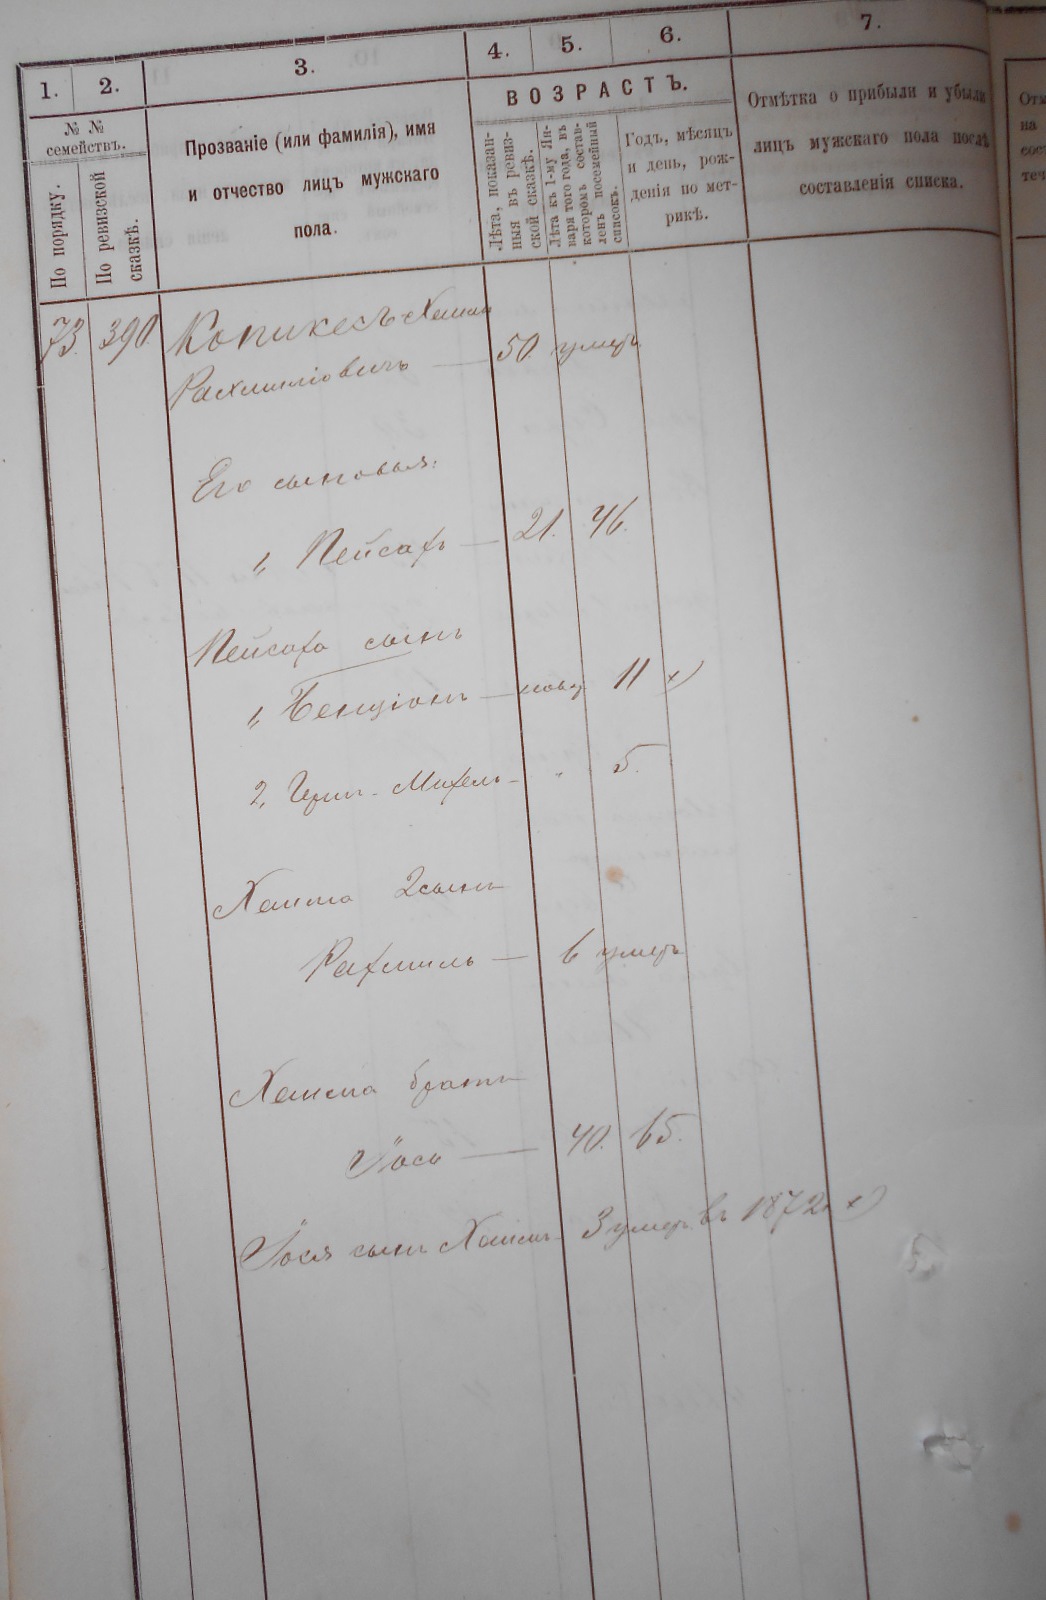 1. 2. 3. 4. 5. 6. 7.
№ №
семействъ.
По порядку.
По ревизской
сказкѣ.
Прозваніе (или фамилія), имя
и отчество лицъ мужскаго
пола.
ВОЗРАСТЪ.
Лѣта, показан-
ныя въ ревиз-
ской сказкѣ.
Лѣта къ 1-му Ян-
варя того года, въ
которомъ состав-
ленъ посемейный
списокъ.
Годъ, мѣсяцъ
и день, рож-
денія по мет-
рикѣ.
Отмѣтка о прибыли и убыли
лицъ мужскаго пола послѣ
составленія списка.
73. 390. Копикесъ Хаимъ
Рахмиліовичъ — 50. умеръ
Его сыновья:
1, Пейсахъ — 21. 46.
Пейсаха сынъ
1, Бенціонъ — новор 11 x)
2, Герш-Михель - " 5.
Хаима 2 сынъ
Рахмиль — 6 умеръ
Хаима братъ
Йось — 40. 65.
Йося сынъ Хаимъ - 3 умеръ въ 1872 x)
Отм
на
сос
теч